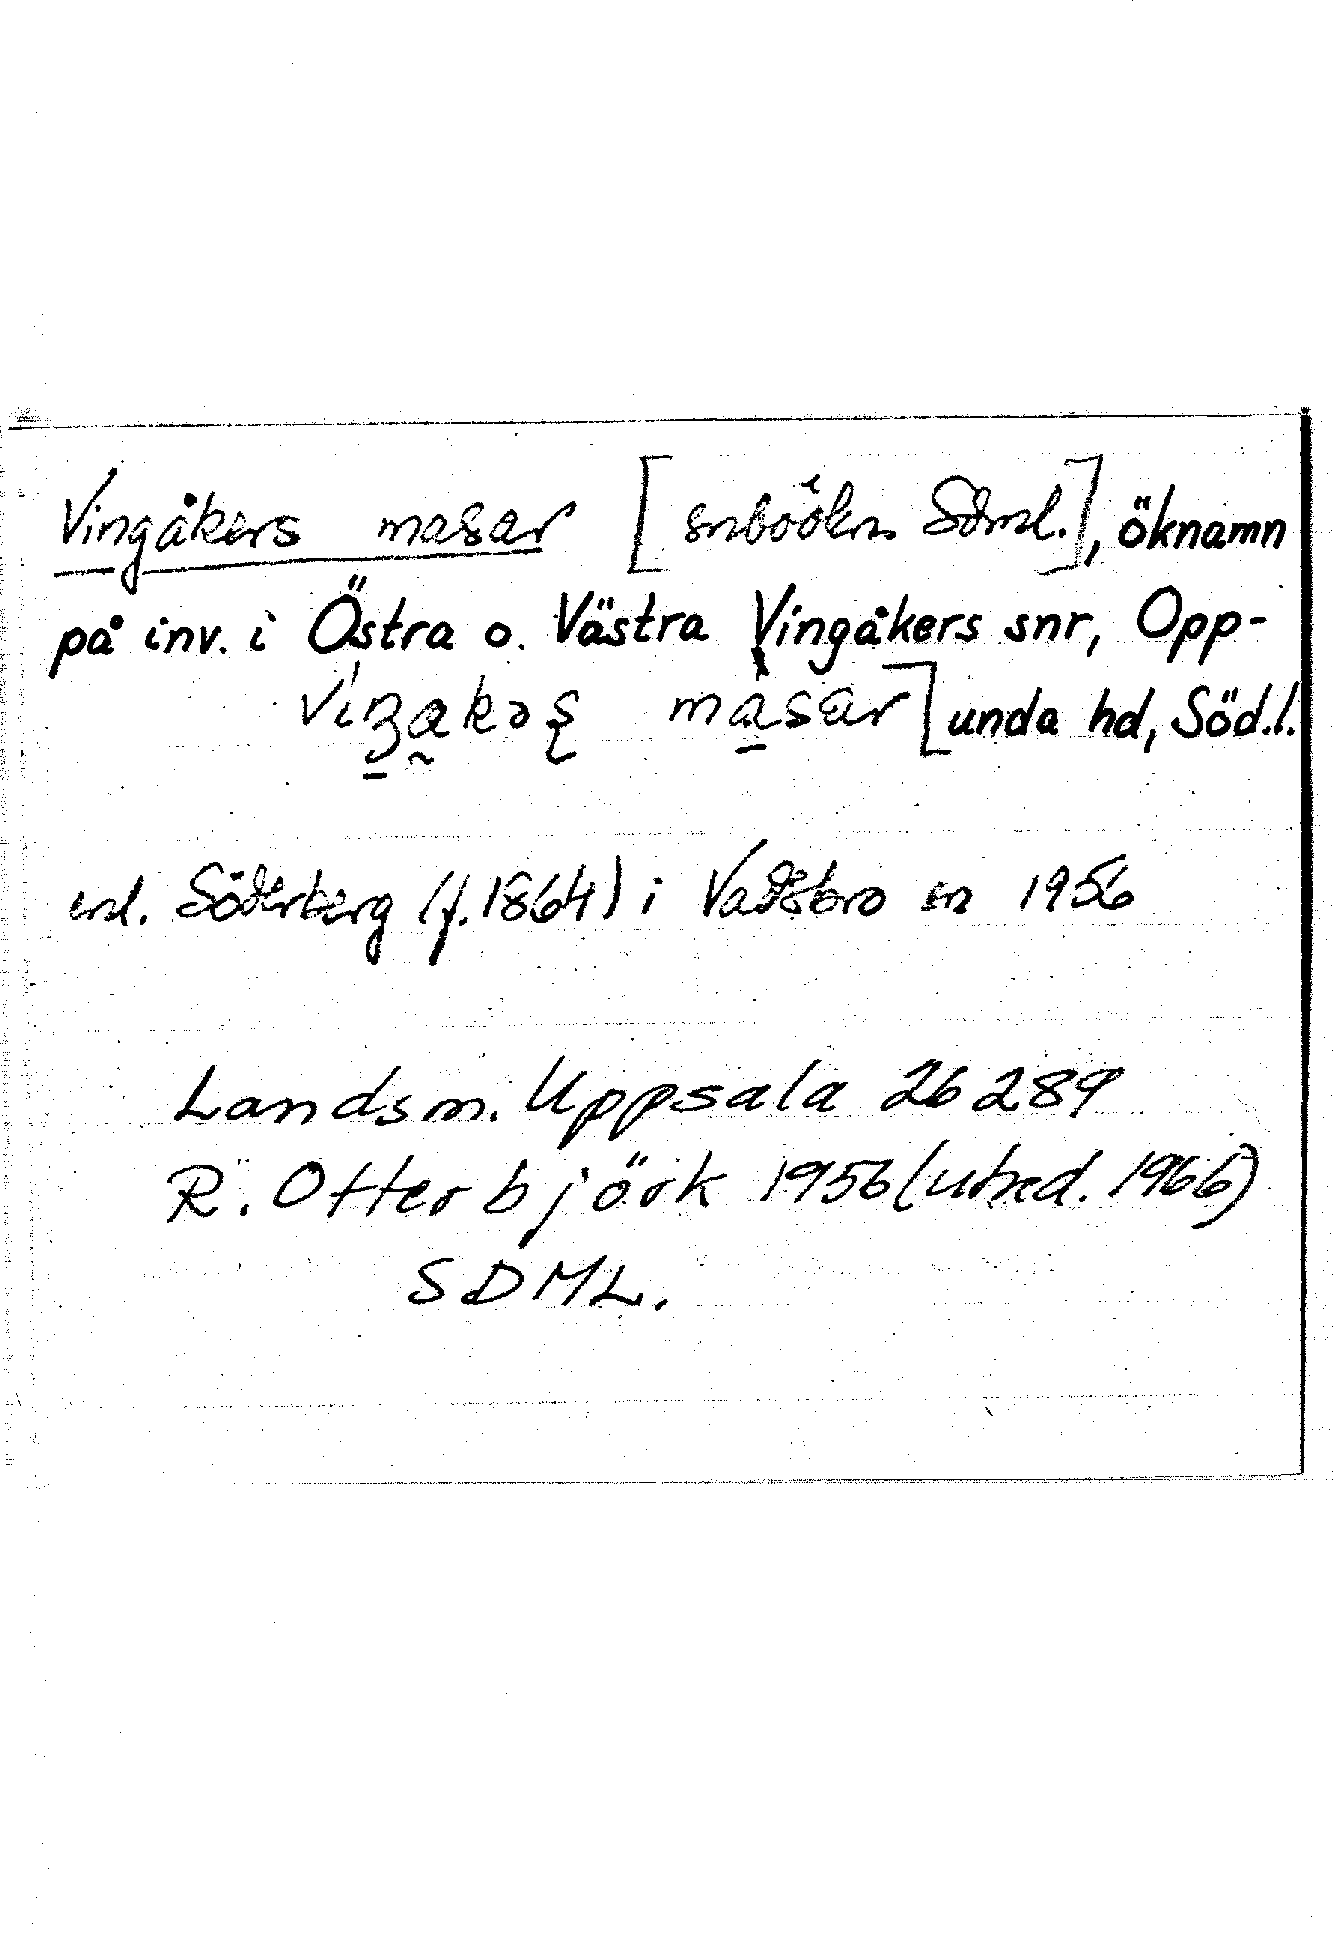 Vingåkers masar [snboökn Sdml.], öknamn
på inv. i Östra o. Västra Vingåkers snr, Opp-
masar] unda hd, Söd.l.
enl. Söderberg (f. 1864) i Vadsbro sn 1956
Landsm. Uppsala 26289
R. Otterbjörk 1956 (utred. 1966)
SDML.